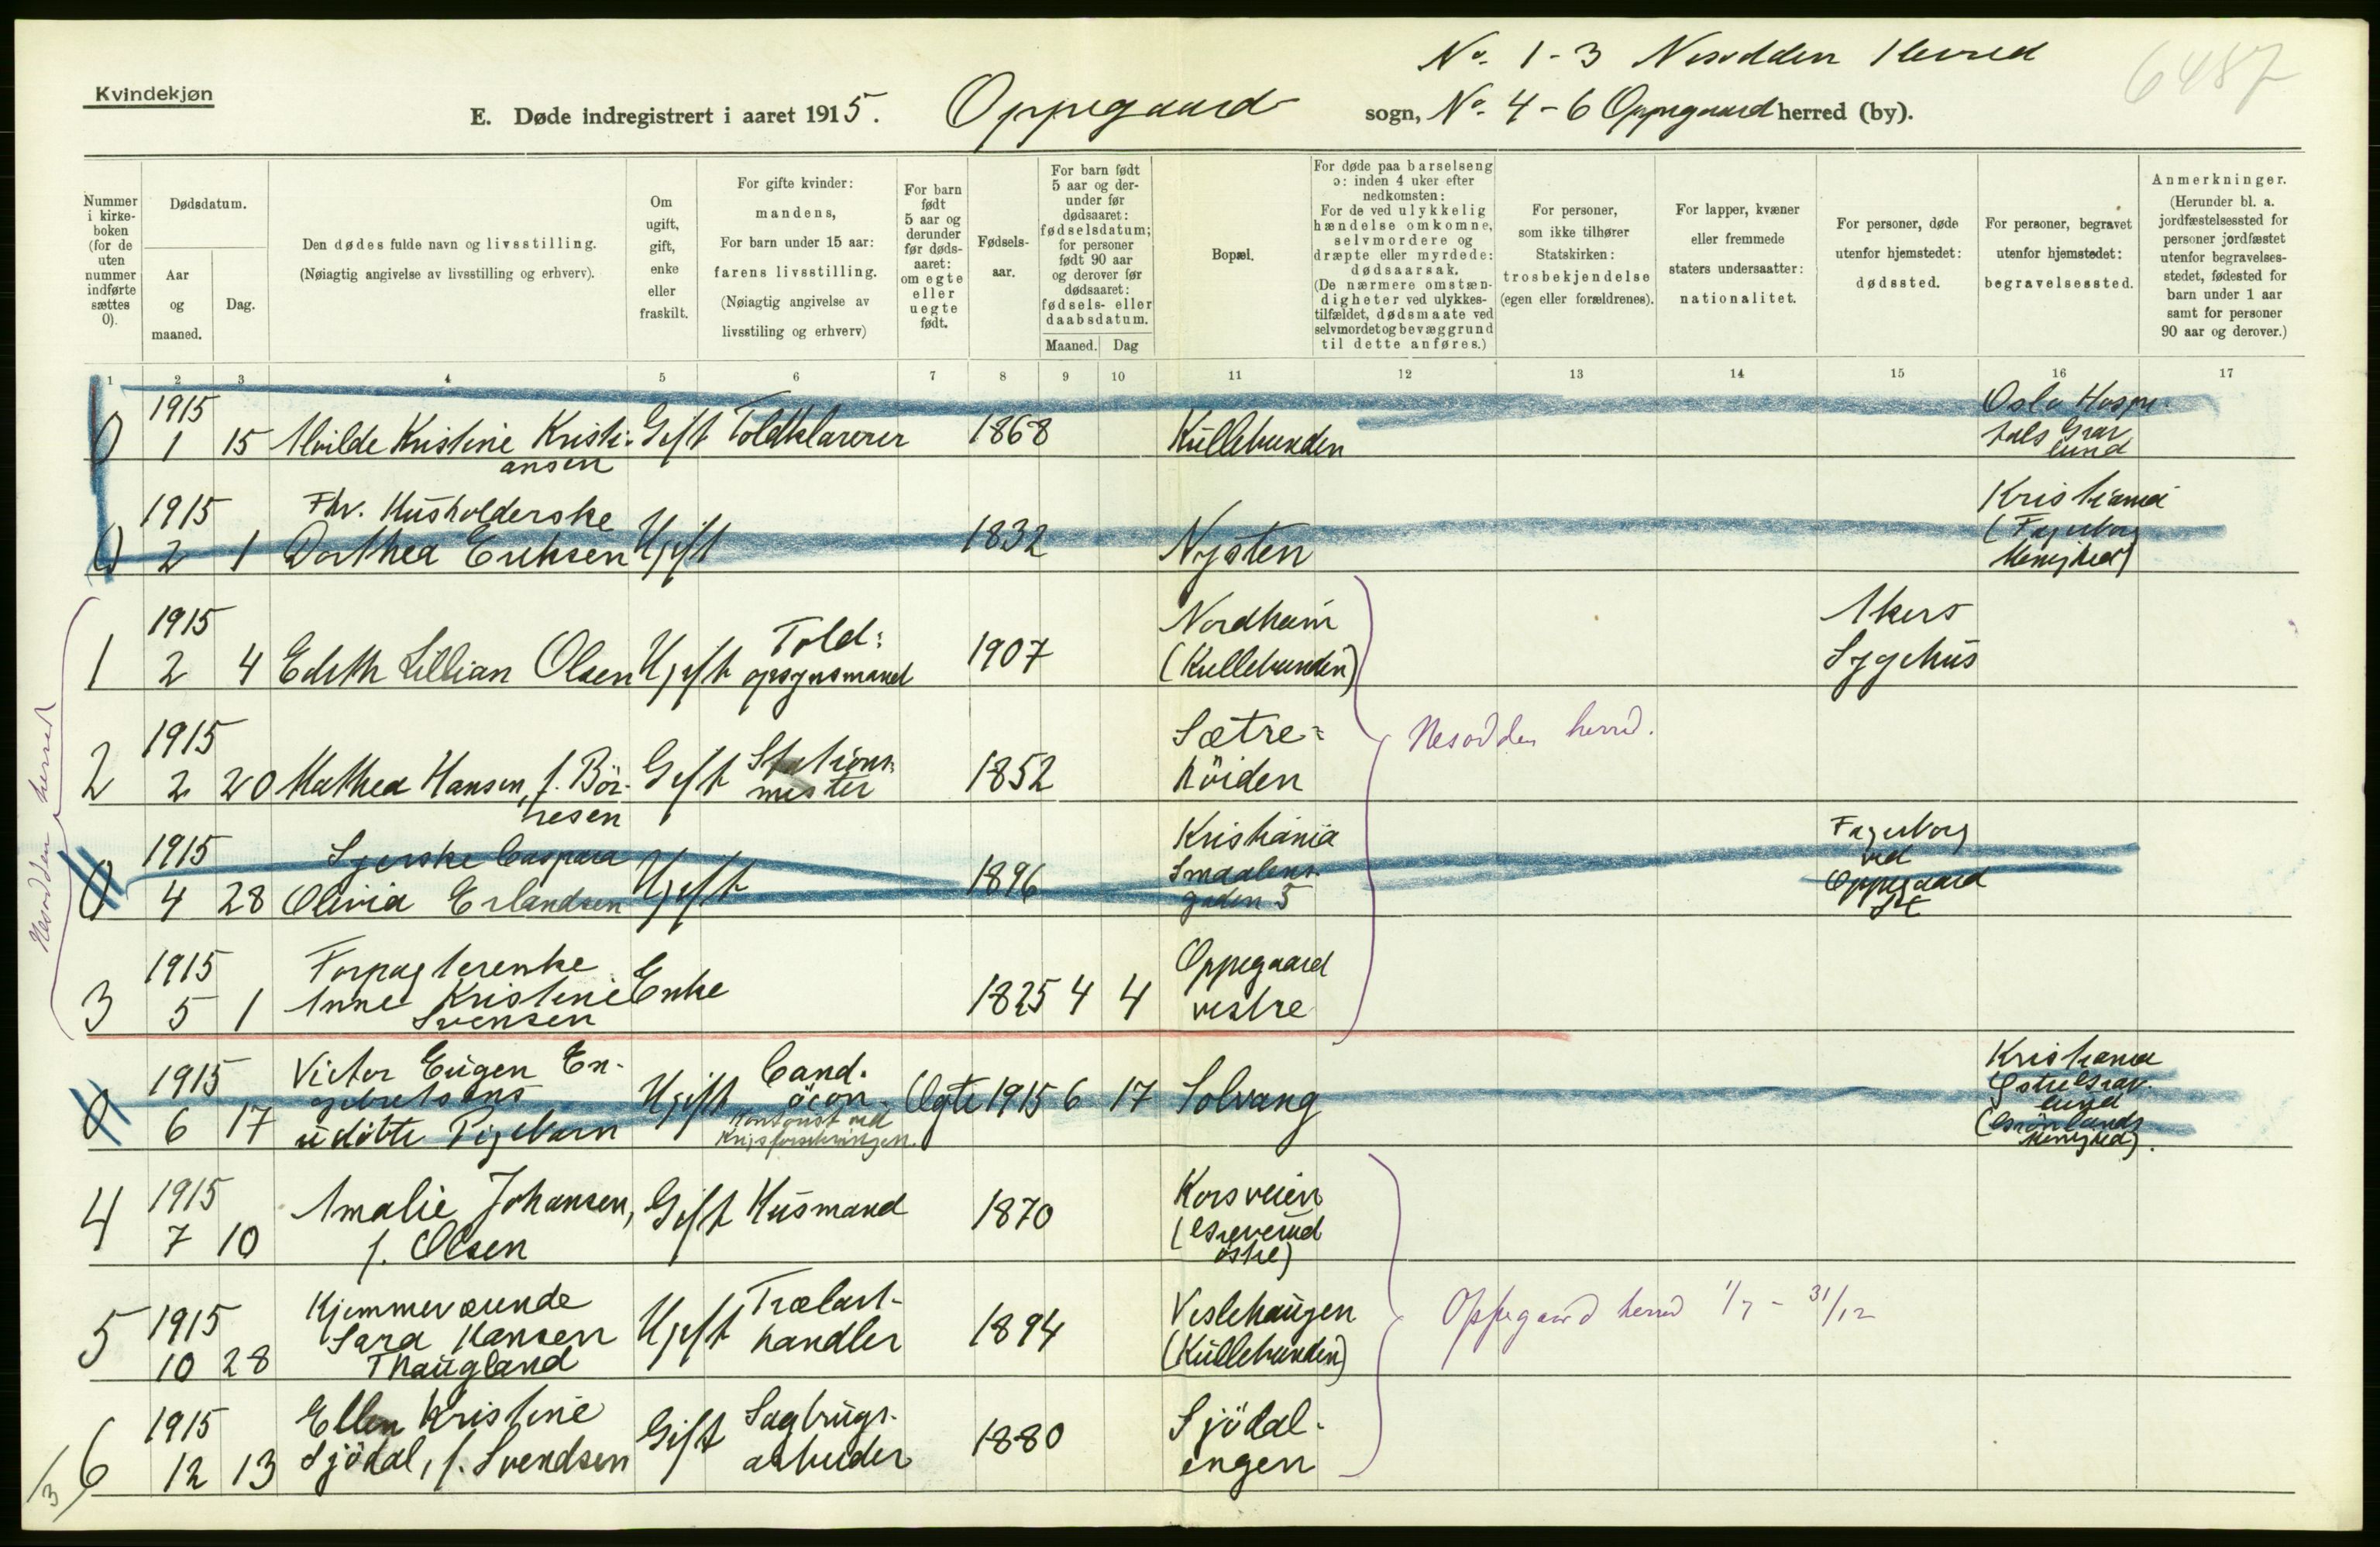 No. 1-3 Nesodden Herred
6487
Kvindekjøn
E. Døde indregistrert i aaret 1915. Oppegaard sogn, No. 4-6 Oppegaard herred (by).
Nummer i kirke-boken (for de uten nummer indførte sættes 0).
Dødsdatum.
Aar og maaned.
Dag.
Den dødes fulde navn og livsstilling.
(Nøiagtig angivelse av livsstilling og erhverv).
Om ugift, gift, enke eller fraskilt.
For gifte kvinder: mandens,
For barn under 15 aar: farens livsstilling.
(Nøiagtig angivelse av livsstiling og erhverv)
For barn født 5 aar og derunder før døds-aaret: om egte eller uegte født.
Fødsels-aar.
For barn født 5 aar og der-under før dødsaaret: fødselsdatum; for personer født 90 aar og derover før dødsaaret: fødsels- eller daabsdatum.
Maaned. Dag
Bopæl.
For døde paa barselseng ɔ: inden 4 uker efter nedkomsten:
For de ved ulykkelig hændelse omkomne, selvmordere og dræpte eller myrdede: dødsaarsak.
(De nærmere omstæn-digheter ved ulykkes-tilfældet, dødsmaate ved selvmordet og bevæggrund til dette anføres.)
For personer, som ikke tilhører Statskirken: trosbekjendelse (egen eller forældrenes).
For lapper, kvæner eller fremmede staters undersaatter: nationalitet.
For personer, døde utenfor hjemstedet: dødssted.
For personer, begravet utenfor hjemstedet: begravelsessted.
Anmerkninger.
(Herunder bl. a. jordfæstelsessted for personer jordfæstet utenfor begravelses-stedet, fødested for barn under 1 aar samt for personer 90 aar og derover.)
1 2 3 4 5 6 7 8 9 10 11 12 13 14 15 16 17
0 1915 1 15 Alvilde Kristine Kristi-ansen Gift Toldklarerer 1868 Kullebunden Oslo Hospi-tals Grav lund
0 1915 2 1 Fhv. Husholderske Dorthea Eriksen Ugift 1832 Nysten Kristiania (Fagerborg Menighed)
1 1915 2 4 Edith Lillian Olsen Ugift Told: opsynsmand 1907 Nordheim (Kullebunden) Akers Sygehus
2 1915 2 20 Mathea Hansen, f. Bör-resen Gift Stations-mester 1852 Sætre= höiden
Nesodden herred.
Nesodden herred
0 1915 4 28 Syerske Caspara Olivia Erlandsen Ugift 1896 Kristiania gaden 5 Fagerborg ved Oppegaard St
3 1915 5 1 Forpagterenke Anne Kristine Svensen Enke 1825 4 4 Oppegaard vestre
0 1915 6 17 Victor Eugen En-gebretsens udöbte Pigebarn Ugift Cand. öcon. Kontorist ved Krigsforsikringen. Egte 1915 6 17 Solvang Kristiania Östre Grav-lund (Grönlands Menighed).
4 1915 7 10 Amalie Johansen, f. Olsen Gift Husmand 1870 Korsveien (Greverud östre)
5 1915 10 28 Hjemmeværende Sara Hansen Thaugland Ugift Trælast-handler 1894 Veslehaugen (Kullebunden)
Oppegaard herred 1/7 - 31/12
6 1915 12 13 Ellen Kristine Sjödal, f. Svendsen Gift Sagbrugs-arbeider 1880 Sjödal-engen
/3/